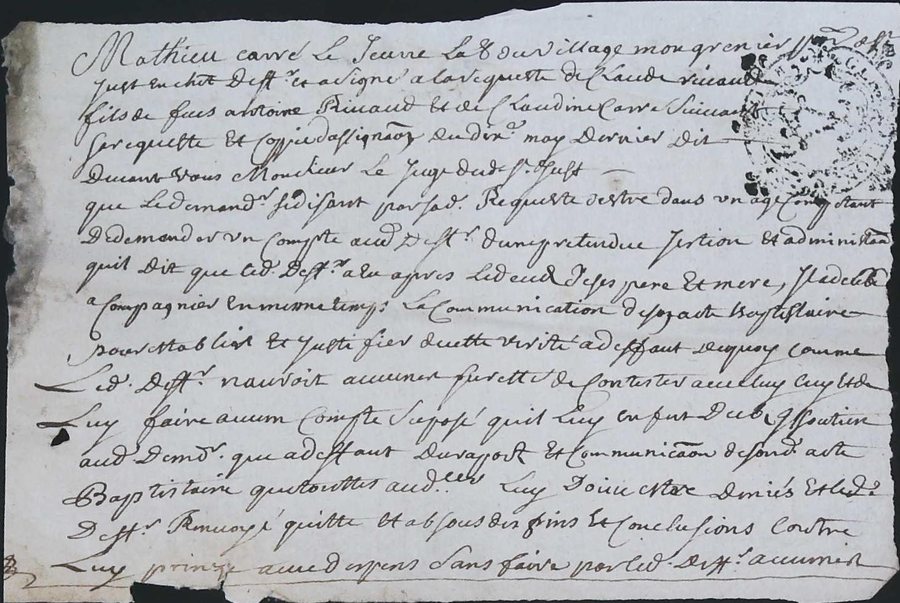 Mathieu carré Le Jeune La du village mongrenier
Just en deffr. et asigné a la requeste de Claude Rivaud
fils de feus antoine Rivaud et de Claudine Carre Suivant
sa requeste et Coppie dassignãon du dix.e may Dernier dit
Devant vous Monsieur Le Juge dud. St. Just
que Ledemandr. se disant par sad. Requeste estre dans un age Competant
De demander un Compte aud. Deffr. dune pretendue gestion et administrãon
quil dit que led. Deffr. a Eu apres Ledeces de ses pere et mere, Il a deub
acompagner En meme temps La Communication de son acte Baptistaire
Pour establir et Justifier de cette verité a deffaut dequoy comme
Led. Deffr. nauroit aucune surette de Contester avec luy ny de
Luy faire aucun Compte Suposé quil Luy en fut Deub, Il soutien
aud. Demr. que a deffaut du raport et Communicãon de sond. acte
Baptistaire toutes aud.ces Luy Doivent estre deniés et led.
Deffr. Renvoyé quitte et absous des fins Et Conclusions Contre
Luy prinze avec depens Sans faire par led. deffr. aucune